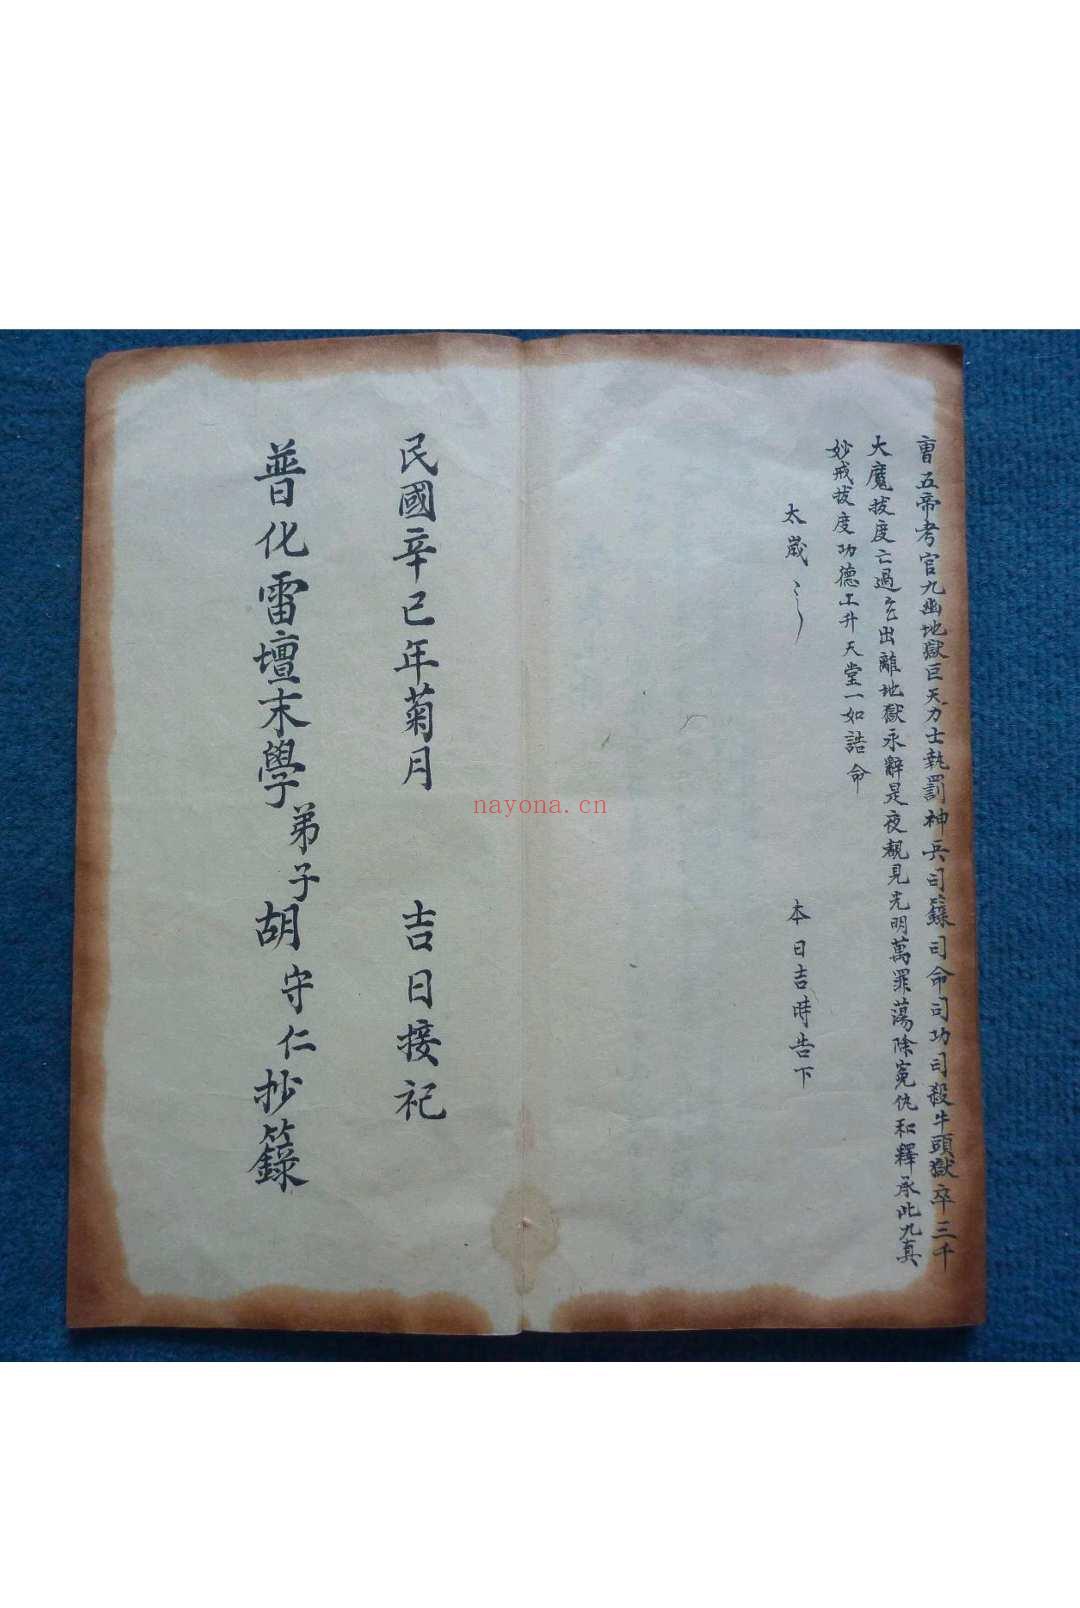 曺五帝考官九幽地獄巨天力士執罰神兵司籙司命司功司殺牛頭獄卒三千
大魔拔度亡過 出離地獄永辭是夜覩見光明萬罪蕩除冤仇和釋承此九真
妙戒拔度功德上升天堂一如誥命
太嵗 本日吉時告下
民國辛巳年菊月 吉日接祀
普化雷壇末學弟子胡守仁抄籙
nayona.cn